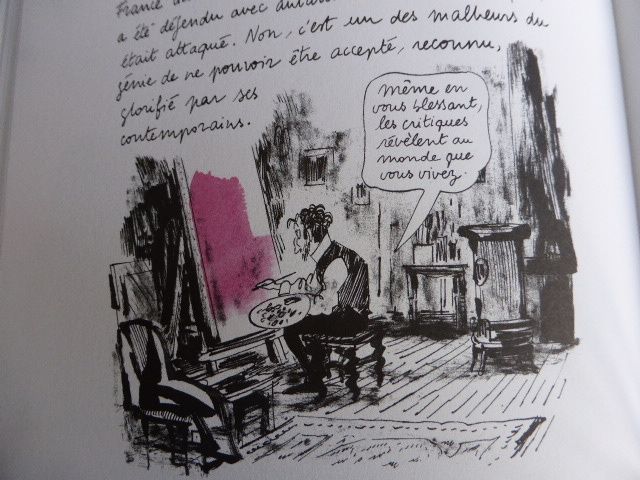 France
a été défendu avec
était attaqué. Non, c'est un des malheurs du
génie de ne pouvoir être accepté, reconnu,
glorifié par ses
contemporains.
même en
vous blessant,
les critiques
révèlent au
monde que
vous vivez.